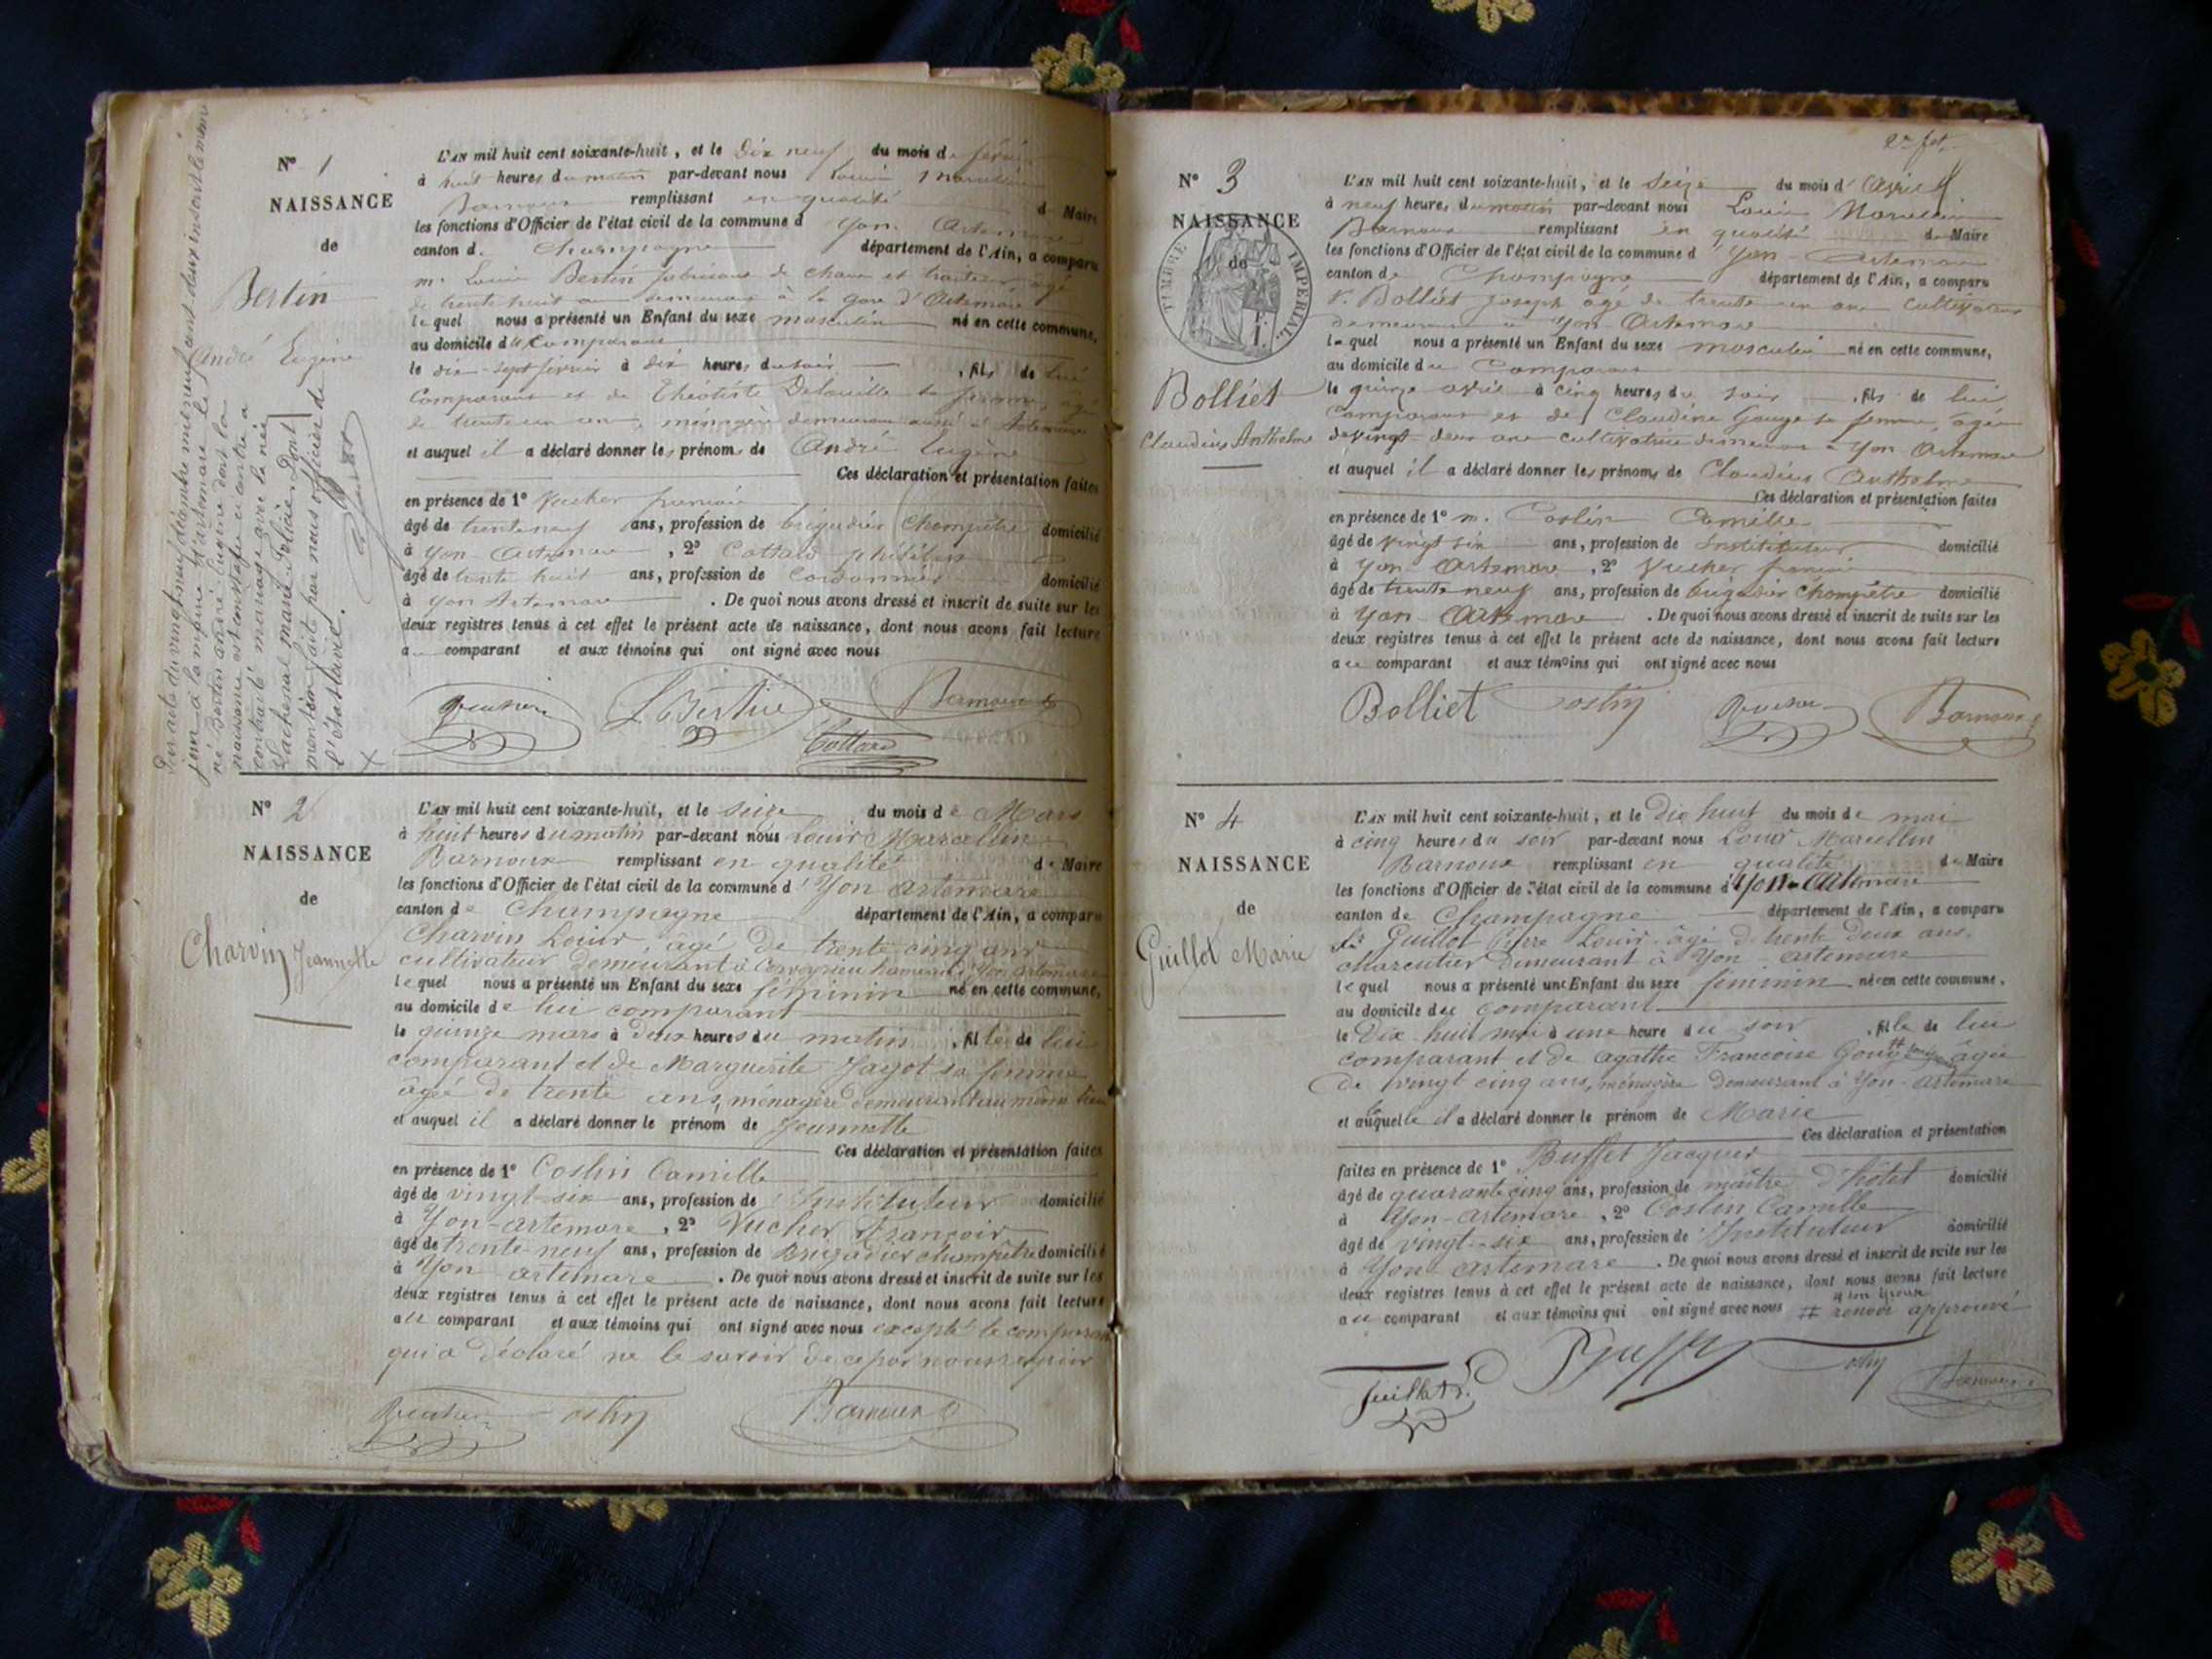 N° 1
NAISSANCE
de
Bertin
André Eugène
L'AN mil huit cent soixante-huit, et le dix neuf du mois de février
à huit heures du matin par-devant nous Louis Marcellin
Barnoux remplissant en qualité de Maire
les fonctions d'Officier de l'état civil de la commune d' Yon Artemare
canton de Champagne département de l'Ain, a comparu
m. Louis Bertin fabricant de chaux et traiteur âgé
de trente huit ans demeurant à la gare d'Artemare
lequel nous a présenté un Enfant du sexe masculin né en cette commune,
au domicile du comparant
le dix-sept février à dix heures du soir, fils de lui
comparant et de Théotiste Delouille sa femme, âgée
de trente un ans, ménagère demeurant aussi à Artemare
et auquel il a déclaré donner les prénoms de André Eugène
Ces déclaration et présentation faites
en présence de 1° Vucher françois
âgé de trente neuf ans, profession de brigadier Champêtre domicilié
à Yon Artemare, 2° Cottard philibert
âgé de trente huit ans, profession de Cordonnier domicilié
à Yon Artemare. De quoi nous avons dressé et inscrit de suite sur les
deux registres tenus à cet effet le présent acte de naissance, dont nous avons fait lecture
au comparant et aux témoins qui ont signé avec nous
Vucher L. Bertin Barnoux
Cottard
Par acte du vingt neuf décembre mil neuf cent deux inscrit le même
jour à la mairie d'artemare le
né Bertin andré Eugène dont la
naissance est constatée ci contre a
contracté mariage avec la née
Lachenal marie Félicie. Dont
mention faite par nous officier de
l'état civil.
N° 2
NAISSANCE
de
Charvin Jeannette
L'AN mil huit cent soixante-huit, et le seize du mois de Mars
à huit heures du matin par-devant nous Louis Marcellin
Barnoux remplissant en qualité de Maire
les fonctions d'Officier de l'état civil de la commune d' Yon artemare
canton de Champagne département de l'Ain, a comparu
Charvin Louis, âgé de trente cinq ans
cultivateur demeurant à Cerveyrieu hameau d'Yon artemare
lequel nous a présenté un Enfant du sexe féminin né en cette commune,
au domicile de lui comparant
le quinze mars à deux heures du matin, fille de lui
comparant et de Marguerite Jagot sa femme
âgée de trente ans, ménagère demeurant au même lieu
et auquel il a déclaré donner le prénom de Jeannette
Ces déclaration et présentation faites
en présence de 1° Coslin Camille
âgé de vingt-six ans, profession de Instituteur domicilié
à Yon-artemare, 2° Vucher François
âgé de trente-neuf ans, profession de Brigadier champêtre domicilié
à Yon artemare. De quoi nous avons dressé et inscrit de suite sur les
deux registres tenus à cet effet le présent acte de naissance, dont nous avons fait lecture
au comparant et aux témoins qui ont signé avec nous excepté le comparant
qui a déclaré ne le savoir de ce par nous requis
Vucher Coslin Barnoux
2e fet
N° 3
NAISSANCE
de
TIMBRE IMPERIAL
Bolliet
Claudius Anthelme
L'AN mil huit cent soixante-huit, et le Seize du mois d' Avril
à neuf heures du matin par-devant nous Louis Marcellin
Barnoux remplissant en qualité de Maire
les fonctions d'Officier de l'état civil de la commune d' Yon-Artemare
canton de Champagne département de l'Ain, a comparu
S. Bolliet Joseph âgé de trente un ans cultivateur
demeurant à Yon-Artemare
lequel nous a présenté un Enfant du sexe masculin né en cette commune,
au domicile du Comparant
le quinze avril à cinq heures du soir, fils de lui
Comparant et de Claudine Gouge sa femme, âgée
de vingt-deux ans cultivatrice demeurant à Yon Artemare
et auquel il a déclaré donner les prénoms de Claudius Anthelme
Ces déclaration et présentation faites
en présence de 1° m. Coslin Camille
âgé de vingt six ans, profession de Instituteur domicilié
à Yon Artemare, 2° Vucher françois
âgé de trente neuf ans, profession de brigadier Champêtre domicilié
à Yon Artemare. De quoi nous avons dressé et inscrit de suite sur les
deux registres tenus à cet effet le présent acte de naissance, dont nous avons fait lecture
au comparant et aux témoins qui ont signé avec nous
Bolliet Coslin Vucher Barnoux
N° 4
NAISSANCE
de
Guillot Marie
L'AN mil huit cent soixante-huit, et le Dix huit du mois de mai
à cinq heures du soir par-devant nous Louis Marcellin
Barnoux remplissant en qualité de Maire
les fonctions d'Officier de l'état civil de la commune d' Yon-Artemare
canton de Champagne département de l'Ain, a comparu
Sr Guillot Pierre Louis âgé de trente deux ans,
charcutier demeurant à Yon-artemare
lequel nous a présenté une Enfant du sexe féminin née en cette commune,
au domicile du comparant
le Dix huit mai à une heure du soir, fille de lui
comparant et de Agathe Françoise Gouge âgée
de vingt cinq ans, ménagère demeurant à Yon-artemare
et à laquelle il a déclaré donner le prénom de Marie
Ces déclaration et présentation
faites en présence de 1° Buffet Jacques
âgé de quarante cinq ans, profession de maître d'hôtel domicilié
à Yon-artemare, 2° Coslin Camille
âgé de vingt-six ans, profession de Instituteur domicilié
à Yon artemare. De quoi nous avons dressé et inscrit de suite sur les
deux registres tenus à cet effet le présent acte de naissance, dont nous avons fait lecture
au comparant et aux témoins qui ont signé avec nous # renvoi approuvé
Guillot Buffet Coslin Barnoux